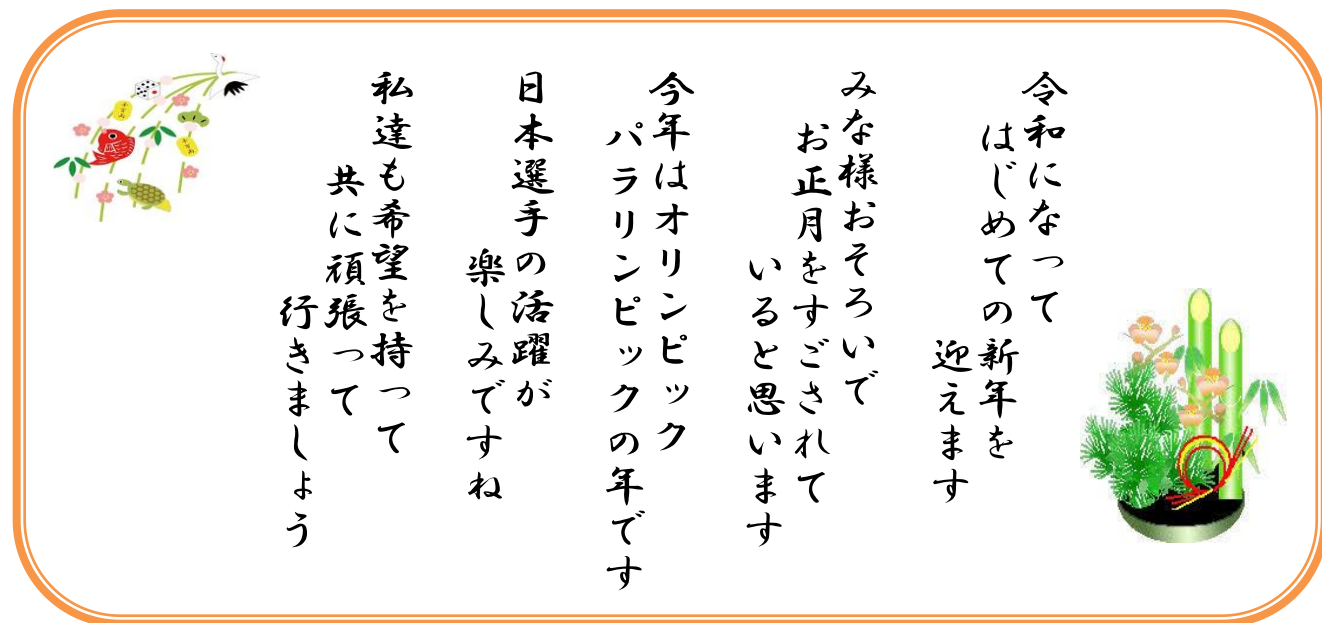 令和になって
はじめての新年を
迎えます
みな様おそろいで
お正月をすごされて
いると思います
今年はオリンピック
パラリンピックの年です
日本選手の活躍が
楽しみですね
私達も希望を持って
共に頑張って
行きましょう